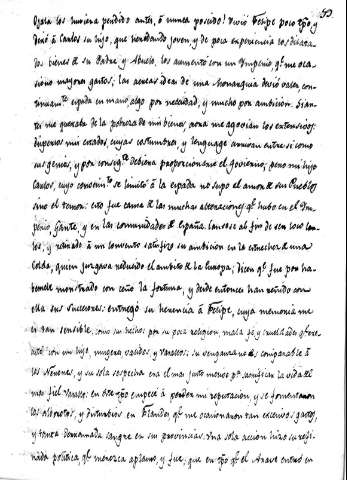 Ojala los huviera perdido antes, ò nunca poseido! Vivió Felipe poco tpo, y
dexó à Carlos su hijo, que heredando joven y de poca experiencia los
los bienes de su Padre y Abuelo, los aumentó con un Imperio qe. me oca
sionó mayores gastos; las aereas ideas de una Monarquia
espada en mano, algo por necedad, y mucho por ambicion.
me quexaba de la pobreza de mis bienes, aora me agovian los extendidos.
mis estados, cuyas costumbres, y lenguage
sus genios, y por debiera proporcionarse el govierno; pero mi hijo
Carlos, cuyo se limitò à la espada no supo el amor de sus Pueblos
sino el temor: esto fue causa de las muchas alteraciones qe. hubo en el Im-
perio, Gante, y en las comunidades de España. al fin de ser
y retirado à un convento satisfizo su ambicion en la estrechez de una
Celda, quien juzgava reducido el ambito de la Europa; dicen qe. fue por ha-
berle mostrado con ceño la fortuna, y desde entonces han reñido con
ella sus succesores: entregó su herencia à Felipe, cuya memoria me
es tan sensible, como sus hechos por su poca religion, mala fé, y crueldad qe.
con un hijo, mugeres, y Vasallos; su venganza no es comparable à
los Nerones, y su sola sospecha era el mas justo motivo pa. sacrificar la vida del
mas fiel Vasallo. en este tpo empecè à perder mi reputacion, y se fomentaron
los alborotos, y disturbios en Flandes, qe. me ocasionaron tan excesivos gastos,
y tanta derramada sangre en sus provincias. Una sola accion hizo su refi-
nada politica, qe. merezca aplauso, y fue, que en tpo qe. el entrò en